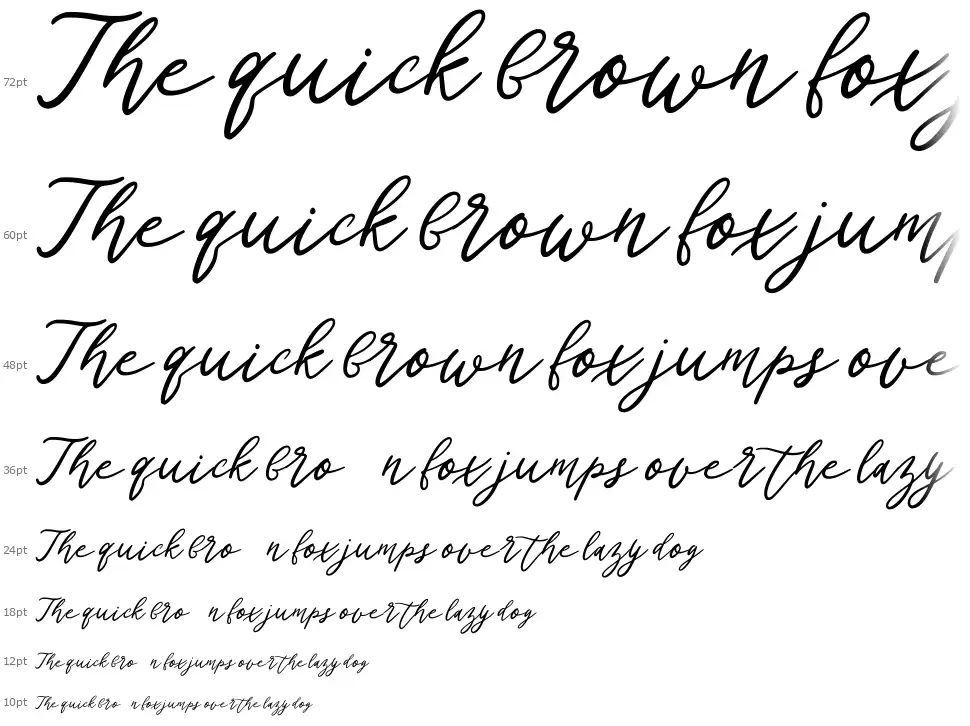 72pt The quick brown fox j
60pt The quick brown fox jump
48pt The quick brown fox jumps ove
36pt The quick bro n fox jumps over the lazy
24pt The quick bro n fox jumps over the lazy dog
18pt The quick bro n fox jumps over the lazy dog
12pt The quick bro n fox jumps over the lazy dog
10pt The quick bro n fox jumps over the lazy dog